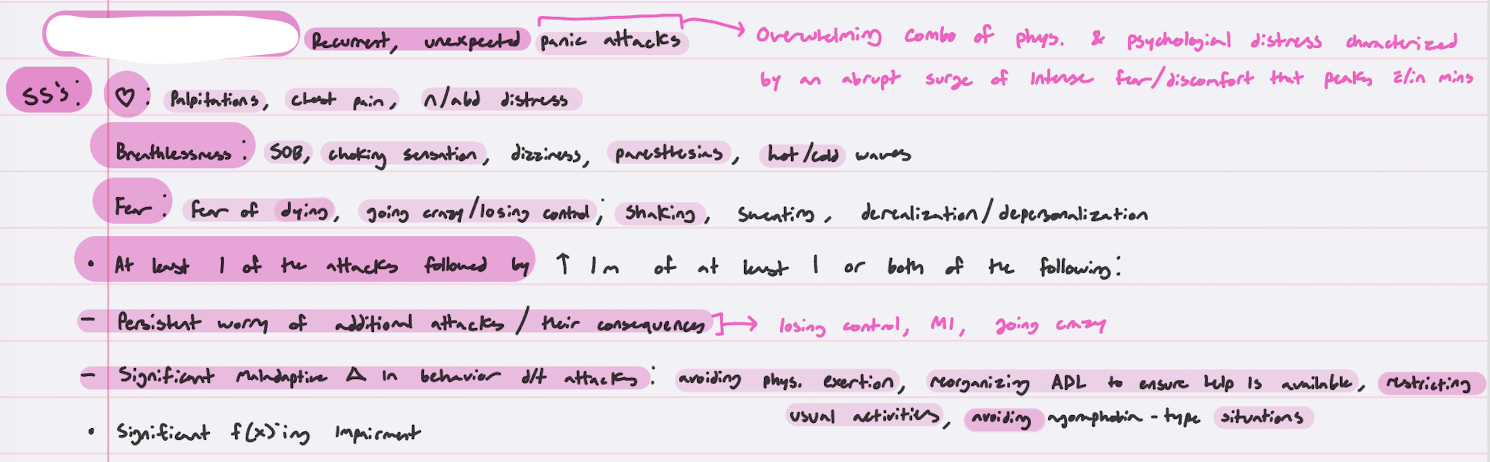 Recurrent, unexpected panic attacks → Overwhelming combo of phys. & psychological distress characterized
by an abrupt surge of intense fear/discomfort that peaks w/in mins
SS's: ♡: Palpitations, chest pain, n/abd distress
Breathlessness: SOB, choking sensation, dizziness, paresthesias, hot/cold waves
Fear: Fear of dying, going crazy/losing control; shaking, sweating, derealization/depersonalization
• At least 1 of the attacks followed by ↑ 1m of at least 1 or both of the following:
– Persistent worry of additional attacks / their consequences → losing control, MI, going crazy
– Significant maladaptive Δ in behavior d/t attacks: avoiding phys. exertion, reorganizing ADL to ensure help is available, restricting
usual activities, avoiding agoraphobia-type situations
• Significant f(x)'ing impairment